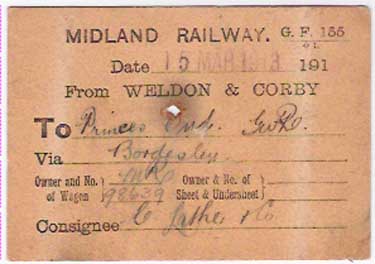 MIDLAND RAILWAY. G. F. 155
Date 15 MAR 1913 191
From WELDON & CORBY
To Princes End. GWR.
Via Bordesley
Owner and No. of Wagon } MR 98639 { Owner & No. of Sheet & Undersheet }
Consignee C & Co